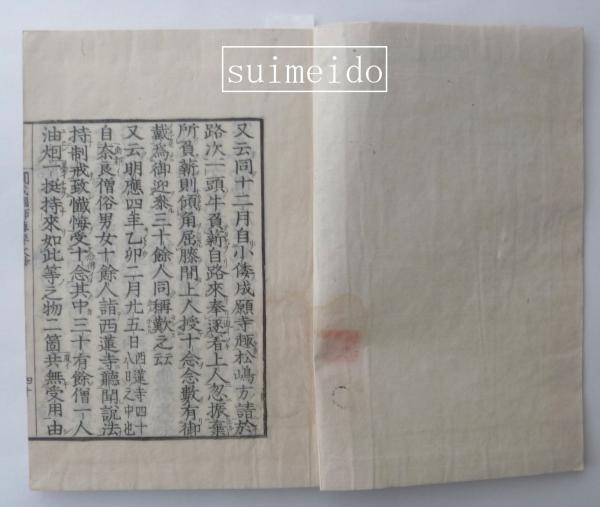 suimeido
又云同十二月自小倭成願寺趣松嶋方請於
路次一頭牛負薪自路來奉逐看上人忽振棄
所負薪則傾角屈膝開上人授十念念數有御
戴為御迎參三十餘人同稱歎之云
又云明應四年乙卯二月九五日西蓮寺四十八日之中也
自奈良僧俗男女十餘人詣西蓮寺聽聞說法
持制戒致懺悔受十念其中三十有餘僧一人
油烟一挺持來如此等之物二箇共無受用由
四十